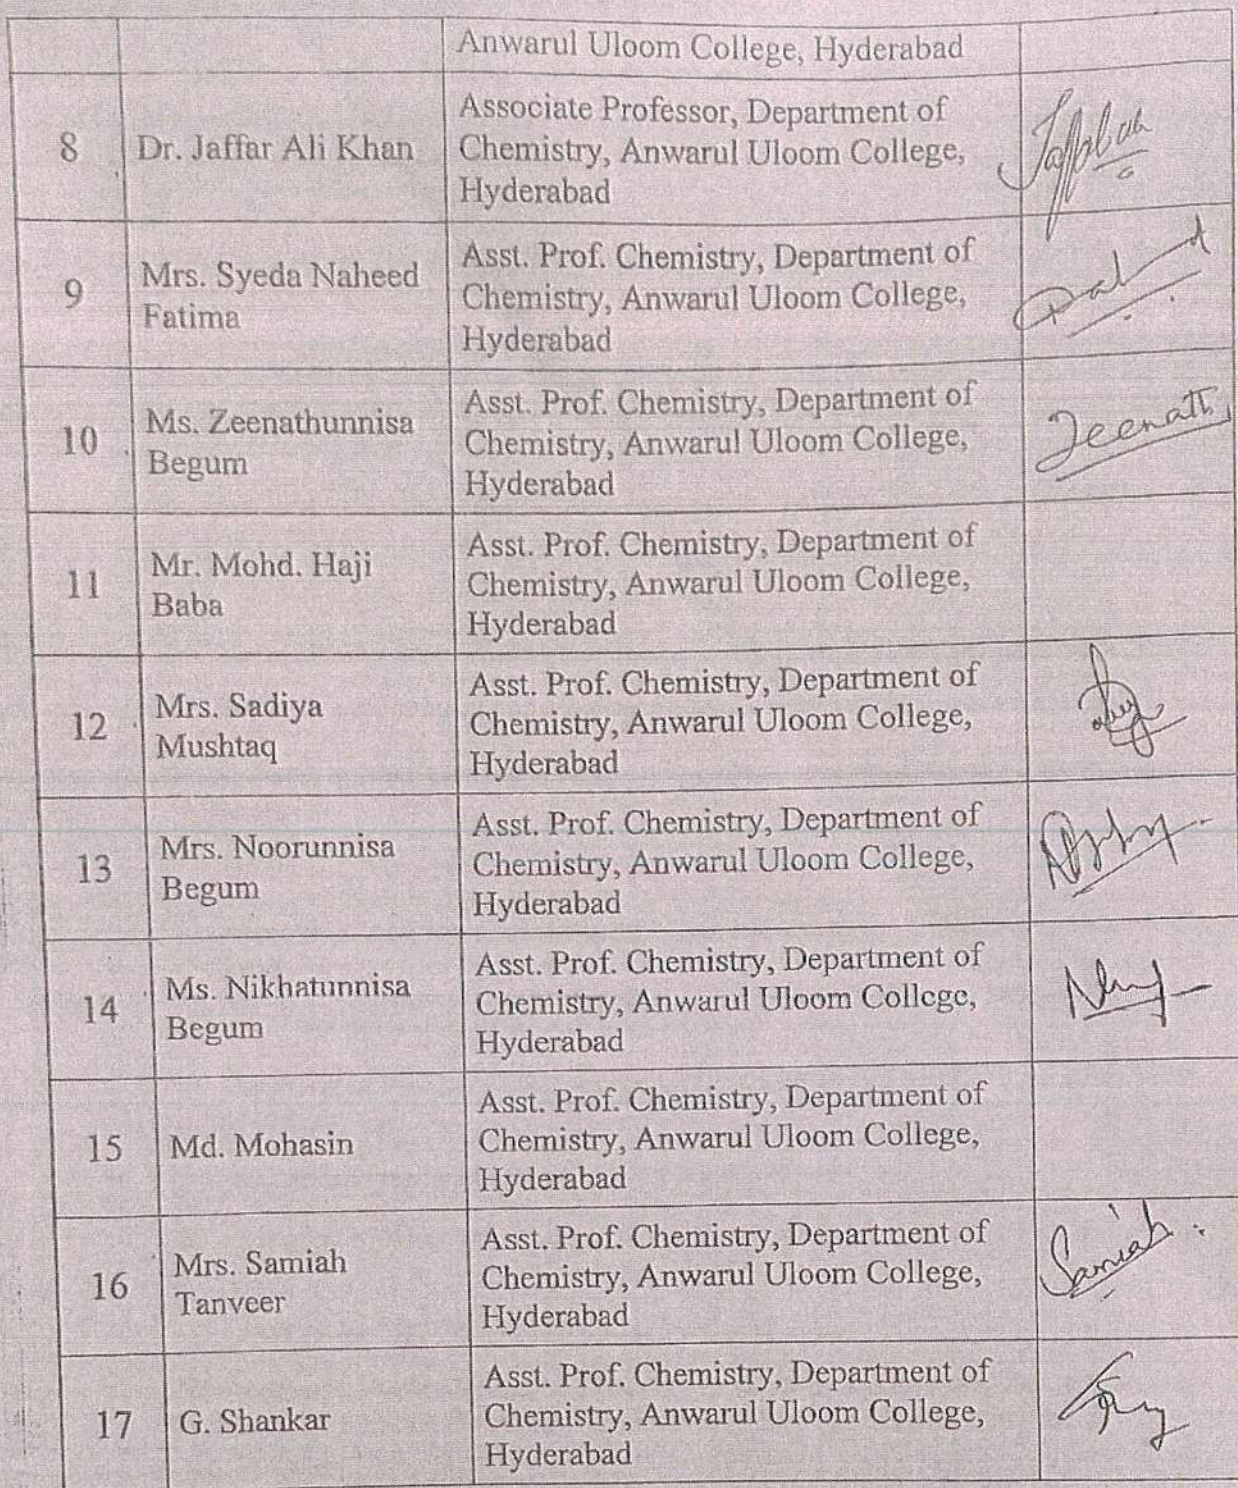 Anwarul Uloom College, Hyderabad
8
Dr. Jaffar Ali Khan
Associate Professor, Department of
Chemistry, Anwarul Uloom College,
Hyderabad
9
Mrs. Syeda Naheed
Fatima
Asst. Prof. Chemistry, Department of
Chemistry, Anwarul Uloom College,
Hyderabad
10
Ms. Zeenathunnisa
Begum
Asst. Prof. Chemistry, Department of
Chemistry, Anwarul Uloom College,
Hyderabad
Zeenath
11
Mr. Mohd. Haji
Baba
Asst. Prof. Chemistry, Department of
Chemistry, Anwarul Uloom College,
Hyderabad
12
Mrs. Sadiya
Mushtaq
Asst. Prof. Chemistry, Department of
Chemistry, Anwarul Uloom College,
Hyderabad
13
Mrs. Noorunnisa
Begum
Asst. Prof. Chemistry, Department of
Chemistry, Anwarul Uloom College,
Hyderabad
14
Ms. Nikhatunnisa
Begum
Asst. Prof. Chemistry, Department of
Chemistry, Anwarul Uloom College,
Hyderabad
15
Md. Mohasin
Asst. Prof. Chemistry, Department of
Chemistry, Anwarul Uloom College,
Hyderabad
16
Mrs. Samiah
Tanveer
Asst. Prof. Chemistry, Department of
Chemistry, Anwarul Uloom College,
Hyderabad
Samiah
17
G. Shankar
Asst. Prof. Chemistry, Department of
Chemistry, Anwarul Uloom College,
Hyderabad